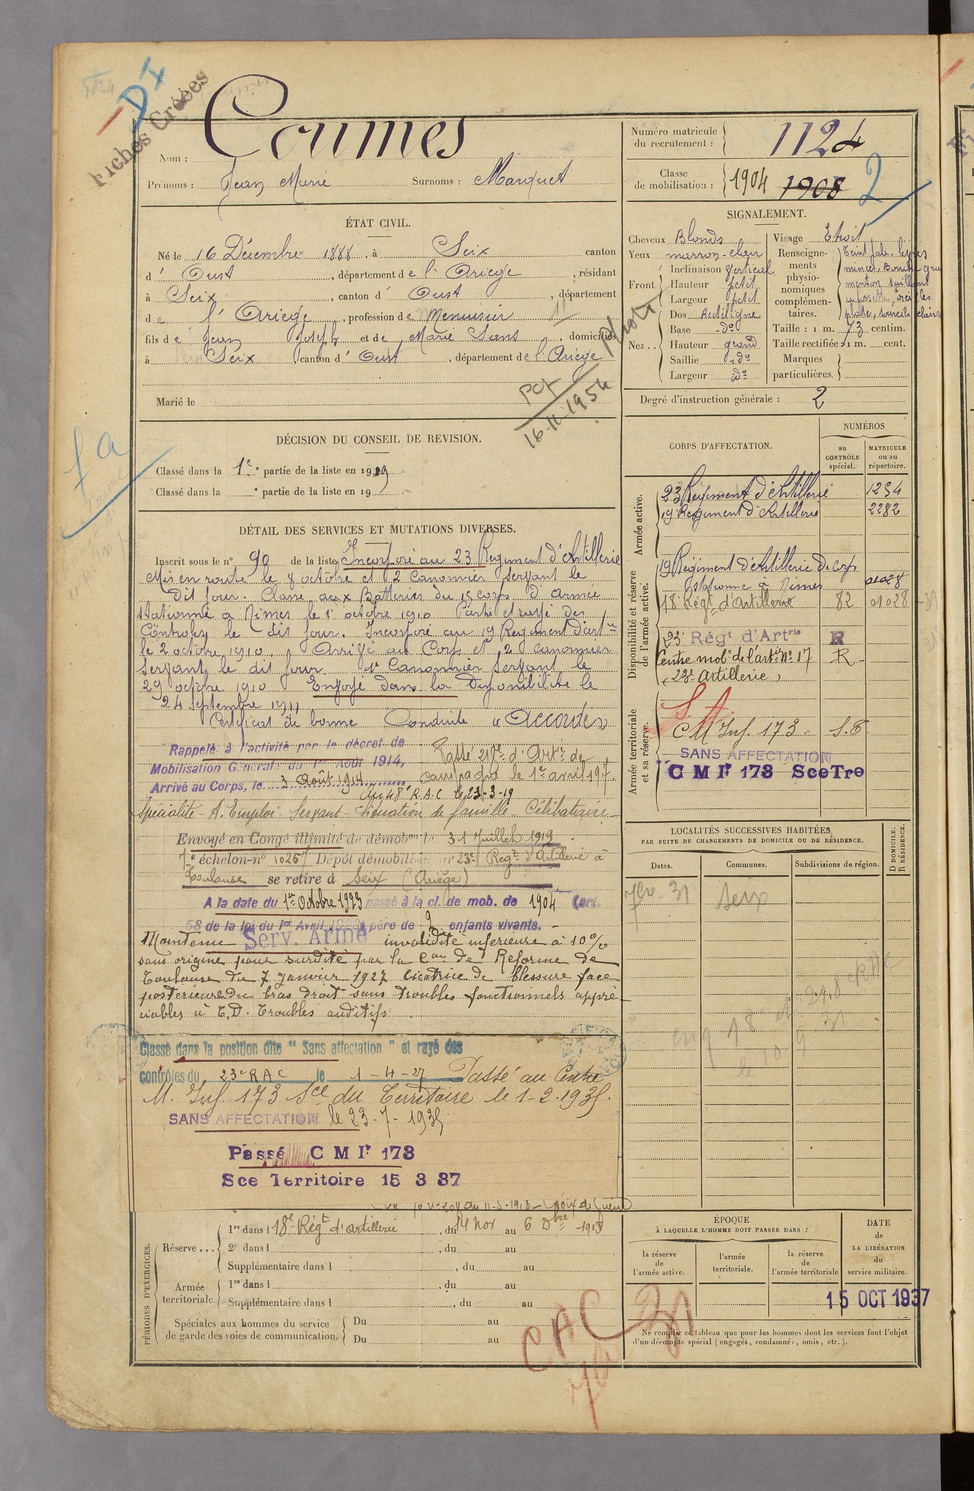 Fiches Créées
DI
Nom : Coumes
Prénoms : Jean Marie Surnoms : Marquet
Numéro matricule du recrutement : 1124
Classe de mobilisation : 1904 1908 2
ÉTAT CIVIL.
Né le 16 Décembre 1888, à Seix canton
d'Oust, département de l'Ariège, résidant
à Seix, canton d'Oust, département
de l'Ariège, profession de Menuisier
fils de Jean Joseph et de Marie Sans, domiciliés
à Seix canton d'Oust, département de l'Ariège
Marié le
16-11-1954
SIGNALEMENT.
Cheveux Blonds
Yeux marron-clair
Front Inclinaison Vertical
Hauteur petit
Largeur petit
Nez Dos Rectiligne
Base do
Hauteur grand
Saillie do
Largeur do
Visage Etroit
Renseignements physionomiques complémentaires.
Taille : 1 m. 73 centim.
Taille rectifiée : 1 m. cent.
Marques particulières.
Degré d'instruction générale : 2
DÉCISION DU CONSEIL DE REVISION.
Classé dans la 1e partie de la liste en 1909
Classé dans la e partie de la liste en 19
fa
DÉTAIL DES SERVICES ET MUTATIONS DIVERSES.
Inscrit sous le n° 90 de la liste Incorporé au 23 Régiment d'Artillerie
Mis en route le 8 octobre et 2 canonnier servant le
dit jour. Classé aux Batteries du 15 corps d'armée
stationné à Nimes le 1er octobre 1910 Parti et rayé des
Contrôles le dit jour. Incorporé au 19 Régiment d'artie
le 2 octobre 1910. Arrivé au Corps et 2 canonnier
servant le dit jour 1er Canonnier Servant le
29 octobre 1910 Envoyé dans la Disponibilité le
24 septembre 1911
Certificat de bonne Conduite "Accordé"
Rappelé à l'activité par le décret de
Mobilisation Générale du 1er Août 1914,
Arrivé au Corps, le 3 Août 1914
Passé 218e d'Artie de
campagne le 1er avril 1917.
Au 48e R.A.C. le 23-3-19
Spécialité - A. Emploi Servant - Situation de famille Célibataire
Envoyé en Congé illimité de démobon le 31 Juillet 1919
7e échelon - n° 1025 Dépôt démobilisateur 23e Régt d'Artillerie à
Toulouse se retire à Seix (Ariège)
A la date du 1er Octobre 1923 passé à la cl. de mob. de 1904 (art.
58 de la loi du 1er Avril 1923) père de 9 enfants vivants.
Maintenu Serv. Armé invalidité inférieure à 10%
sans origine pour surdité par la Con de Réforme de
Toulouse du 7 Janvier 1927 cicatrice de blessure face
postérieure du bras droit sans troubles fonctionnels appré-
ciables à T.D. Troubles auditifs
Classé dans la position dite "Sans affectation" et rayé des
contrôles du 23e RAC le 1-4-27 Passé au Centre
M. Inf. 173 Sce du Territoire le 1-2-1935.
SANS AFFECTATION le 23-7-1935
Passé C M Ie 173
Sce Territoire 15 3 37
CORPS D'AFFECTATION.
NUMÉROS
au CONTRÔLE spécial.
MATRICULE ou au répertoire.
Armée active.
23 Régiment d'Artillerie 1254
19 Régiment d'Artillerie 2282
Disponibilité et réserve de l'armée active.
19 Régiment d'Artillerie de corps
stationné à Nimes
18e Régt d'Artillerie 82 01028
23e Régt d'Artie R
Centre mobe de l'artie N° 17 R
(23e Artillerie)
Armée territoriale et sa réserve.
SA
CM Inf. 173 S.T.
SANS AFFECTATION
CMIe 173 SceTre
LOCALITÉS SUCCESSIVES HABITÉES,
PAR SUITE DE CHANGEMENTS DE DOMICILE OU DE RÉSIDENCE.
Dates.
Communes.
Subdivisions de région.
D DOMICILE. R RÉSIDENCE.
Seix
PÉRIODES D'EXERCICES.
Réserve 1re dans l 18e Régt d'artillerie, du 14 Nov au 6 Dbre 1913
2e dans l , du au
Supplémentaire dans l , du au
Armée territoriale. 1re dans l , du au
Supplémentaire dans l , du au
Spéciales aux hommes du service de garde des voies de communication. Du au
Du au
ÉPOQUE
À LAQUELLE L'HOMME DOIT PASSER DANS :
la réserve de l'armée active.
l'armée territoriale.
la réserve de l'armée territoriale
DATE de LA LIBÉRATION du service militaire.
15 OCT 1937
CAC
Ne remplir ce tableau que pour les hommes dont les services font l'objet
d'un décompte spécial (engagés, condamnés, omis, etc.).